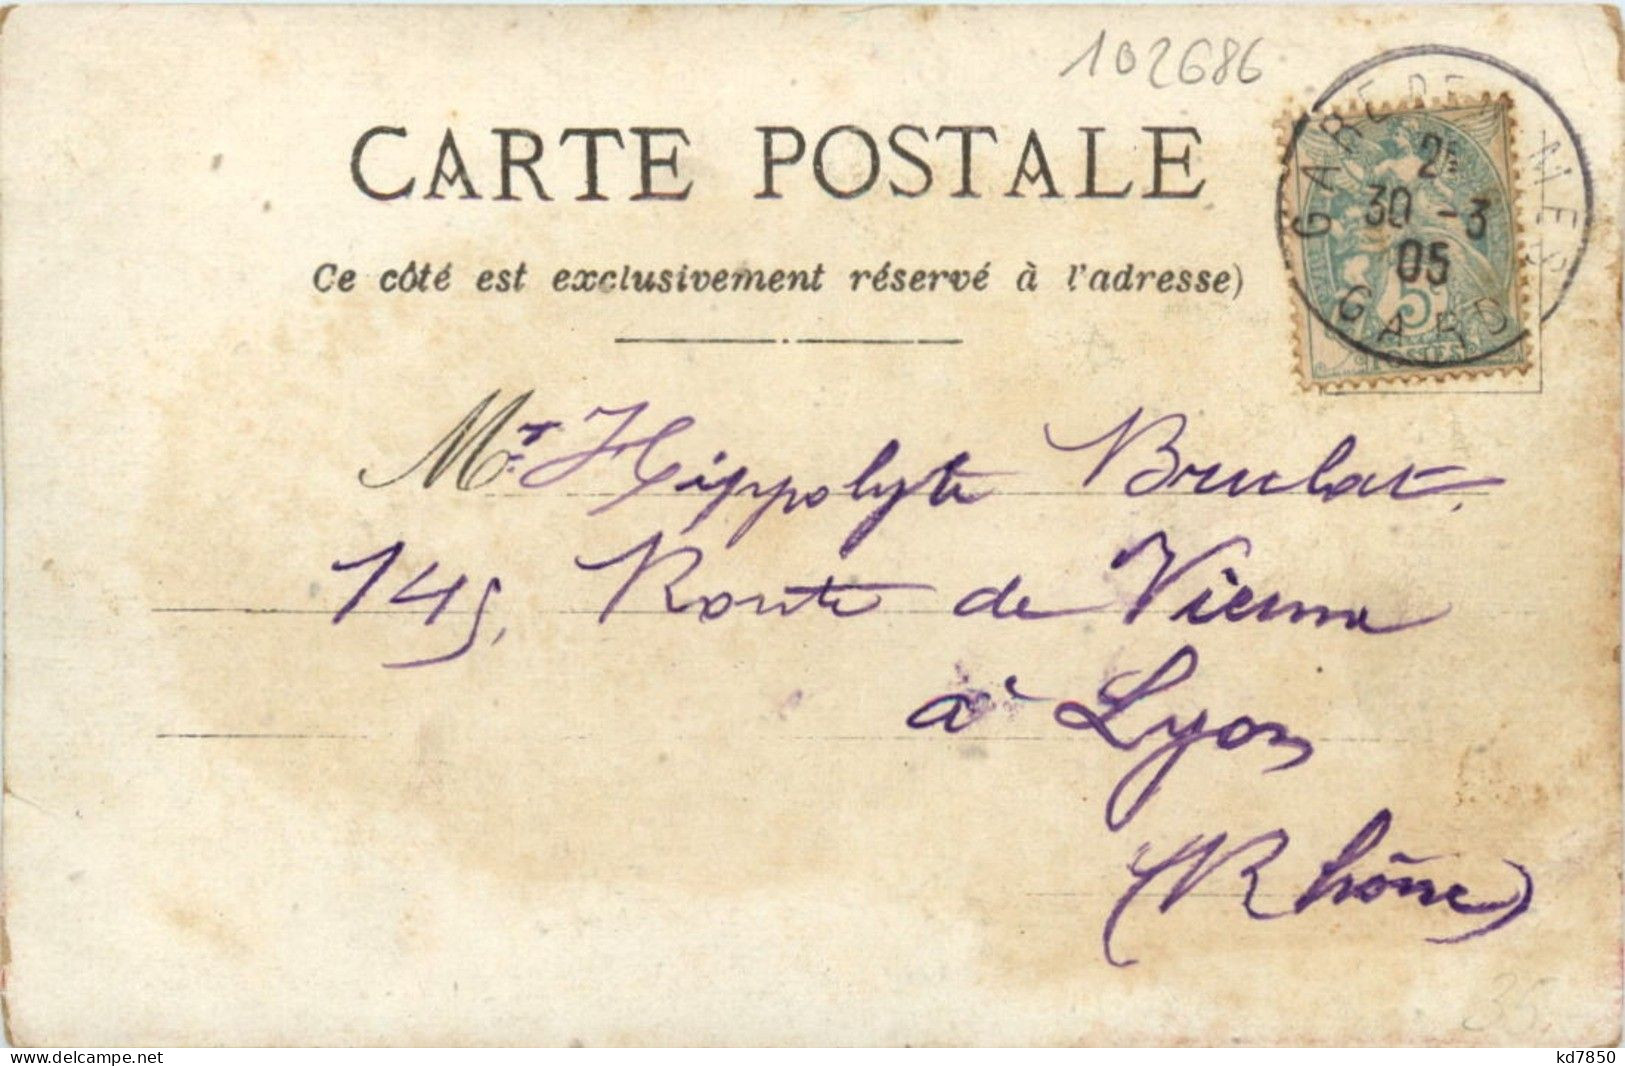 102686
CARTE POSTALE
Ce côté est exclusivement réservé à l'adresse)
GARE DE NÎMES
2E
30 - 3
05
GARD
5
POSTES
Mr. Hippolyte Brulat,
145, Route de Vienne
à Lyon
(Rhône)
35.
delcampe.net
kd7850